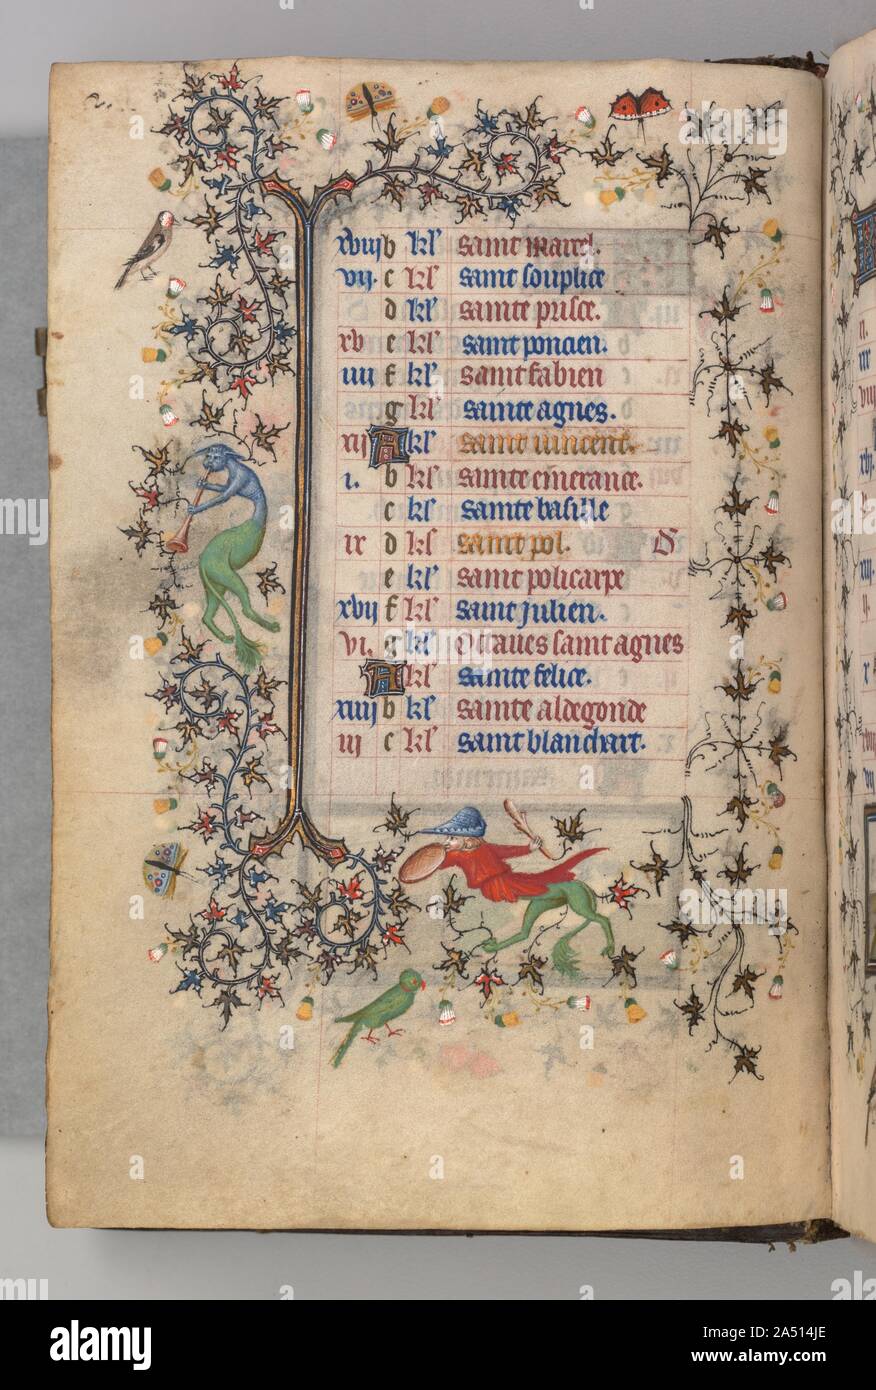 xviij b kl' saint marcel.
vij. c kl' saint souplice
d kl' sainte prisce.
xv e kl' saint poncien.
iiij f kl' saint fabien
g kl' sainte agnes.
xij A kl' saint vincent.
i. b kl' sainte emerance.
c kl' sainte basille
ix d kl' saint pol. D
e kl' saint policarpe
xvij f kl' saint julien.
vi. g kl' Octaues saint agnes
A kl' sainte felice.
xiiij b kl' sainte aldegonde
iij c kl' saint blanchart.
alamy
Image ID: 2A514JE
www.alamy.com